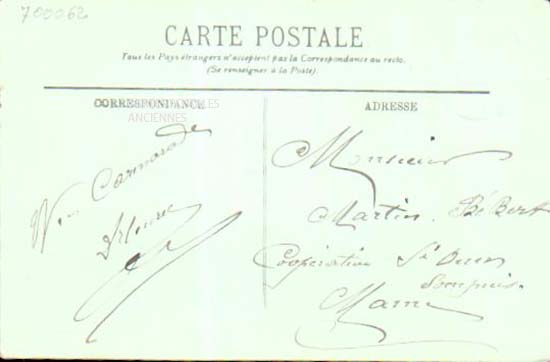 700062
CARTE POSTALE
Tous les Pays étrangers n'acceptent pas la Correspondance au recto.
(Se renseigner à la Poste).
CORRESPONDANCE
ANCIENNES
Camarade
ADRESSE
Monsieur
Martin Bébert
Coopérative St Ouen
Sompuis.
Marne